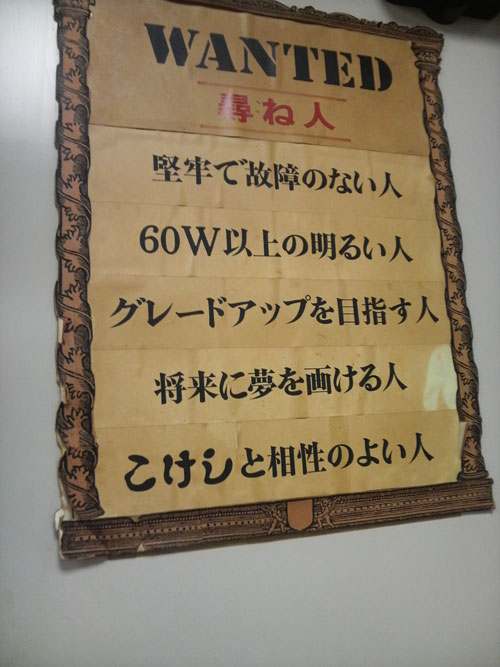 WANTED
尋ね人
堅牢で故障のない人
60W以上の明るい人
グレードアップを目指す人
将来に夢を画ける人
こけしと相性のよい人